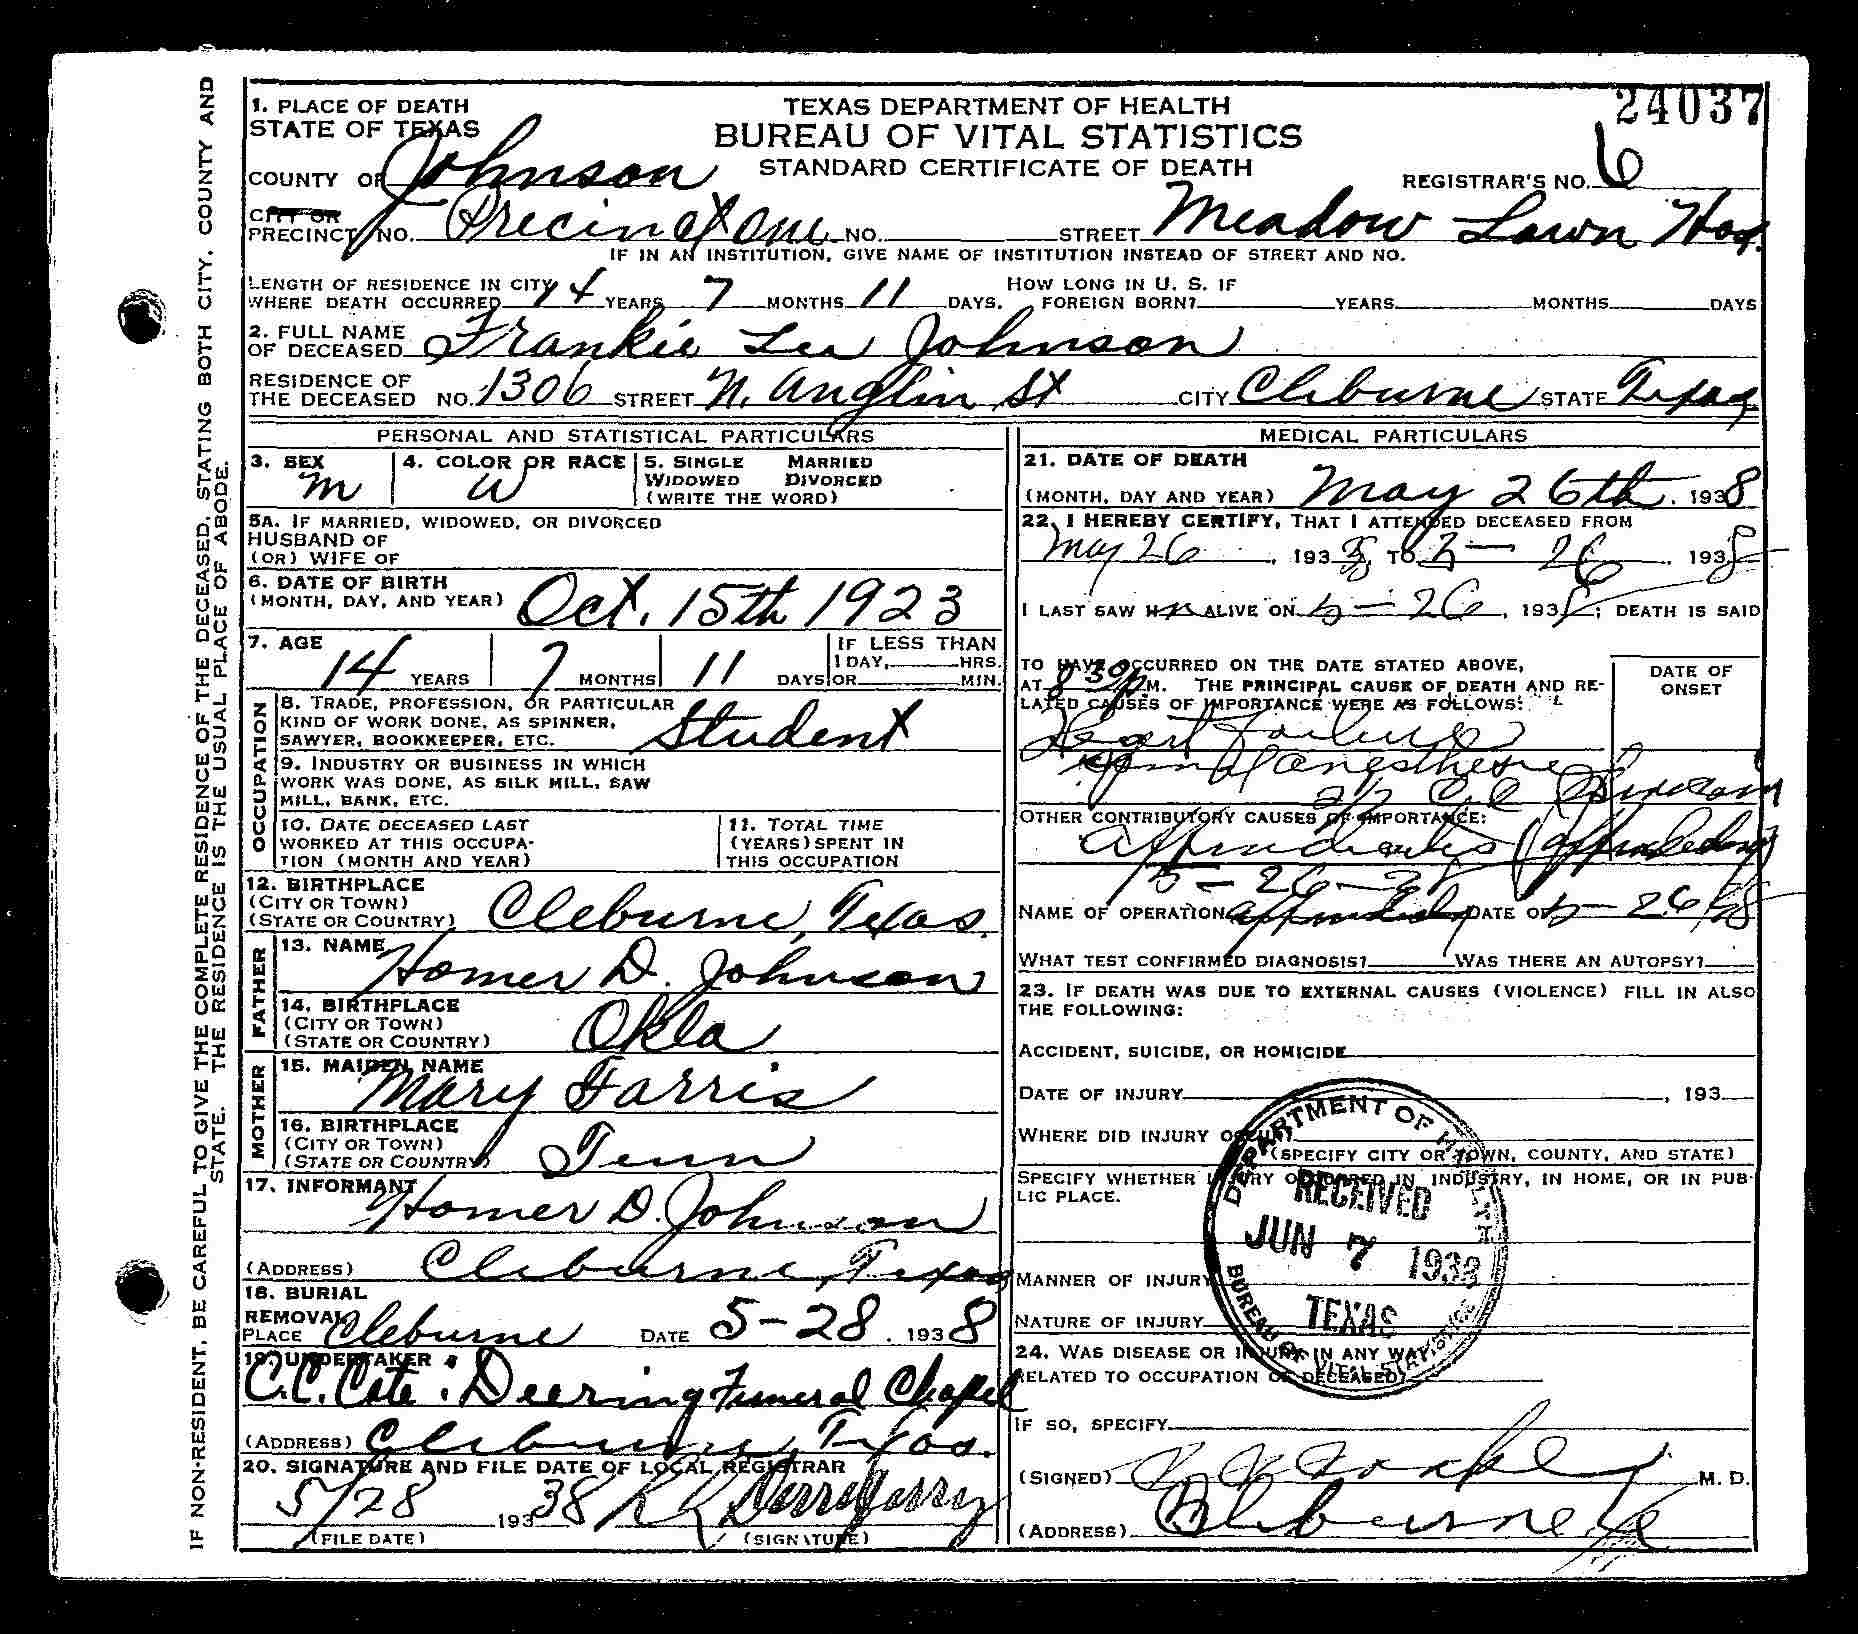 24037
1. PLACE OF DEATH
STATE OF TEXAS
TEXAS DEPARTMENT OF HEALTH
BUREAU OF VITAL STATISTICS
STANDARD CERTIFICATE OF DEATH
COUNTY OF Johnson
REGISTRAR'S NO. 6
CITY OR
PRECINCT NO. Precinct One NO. STREET Meadow Lawn Hos.
IF IN AN INSTITUTION, GIVE NAME OF INSTITUTION INSTEAD OF STREET AND NO.
LENGTH OF RESIDENCE IN CITY
WHERE DEATH OCCURRED 14 YEARS 7 MONTHS 11 DAYS.
HOW LONG IN U. S. IF
FOREIGN BORN? YEARS MONTHS DAYS
2. FULL NAME
OF DECEASED Frankie Lee Johnson
RESIDENCE OF
THE DECEASED NO. 1306 STREET N. Anglin St CITY Cleburne STATE Texas
PERSONAL AND STATISTICAL PARTICULARS
3. SEX M
4. COLOR OR RACE W
5. SINGLE MARRIED
WIDOWED DIVORCED
(WRITE THE WORD)
5A. IF MARRIED, WIDOWED, OR DIVORCED
HUSBAND OF
(OR) WIFE OF
6. DATE OF BIRTH
(MONTH, DAY, AND YEAR) Oct. 15th 1923
7. AGE 14 YEARS 7 MONTHS 11 DAYS
IF LESS THAN
1 DAY, HRS.
OR MIN.
OCCUPATION
8. TRADE, PROFESSION, OR PARTICULAR
KIND OF WORK DONE, AS SPINNER,
SAWYER, BOOKKEEPER, ETC. Student
9. INDUSTRY OR BUSINESS IN WHICH
WORK WAS DONE, AS SILK MILL, SAW
MILL, BANK, ETC.
10. DATE DECEASED LAST
WORKED AT THIS OCCUPA-
TION (MONTH AND YEAR)
11. TOTAL TIME
(YEARS) SPENT IN
THIS OCCUPATION
12. BIRTHPLACE
(CITY OR TOWN)
(STATE OR COUNTRY) Cleburne, Texas.
FATHER
13. NAME Homer D. Johnson
14. BIRTHPLACE
(CITY OR TOWN)
(STATE OR COUNTRY) Okla.
MOTHER
15. MAIDEN NAME Mary Farris
16. BIRTHPLACE
(CITY OR TOWN)
(STATE OR COUNTRY) Tenn
17. INFORMANT Homer D. Johnson
(ADDRESS) Cleburne, Texas
18. BURIAL
REMOVAL
PLACE Cleburne DATE 5-28, 1938
19. UNDERTAKER
C.C. Cate: Deering Funeral Chapel
(ADDRESS) Cleburne, Texas.
20. SIGNATURE AND FILE DATE OF LOCAL REGISTRAR
5/28 1938
(FILE DATE) (SIGNATURE)
MEDICAL PARTICULARS
21. DATE OF DEATH
(MONTH, DAY AND YEAR) May 26th, 1938
22. I HEREBY CERTIFY, THAT I ATTENDED DECEASED FROM
May 26, 1938, TO 5-26, 1938
I LAST SAW H ALIVE ON 5-26, 1938; DEATH IS SAID
TO HAVE OCCURRED ON THE DATE STATED ABOVE,
AT 8 30 P.M. THE PRINCIPAL CAUSE OF DEATH AND RE-
LATED CAUSES OF IMPORTANCE WERE AS FOLLOWS:
DATE OF
ONSET
Heart Failure
OTHER CONTRIBUTORY CAUSES OF IMPORTANCE:
Appendicitis
5-26-38
NAME OF OPERATION DATE OF 5-26/38
WHAT TEST CONFIRMED DIAGNOSIS? WAS THERE AN AUTOPSY?
23. IF DEATH WAS DUE TO EXTERNAL CAUSES (VIOLENCE) FILL IN ALSO
THE FOLLOWING:
ACCIDENT, SUICIDE, OR HOMICIDE
DATE OF INJURY , 193
WHERE DID INJURY OCCUR?
(SPECIFY CITY OR TOWN, COUNTY, AND STATE)
SPECIFY WHETHER INJURY OCCURRED IN INDUSTRY, IN HOME, OR IN PUB-
LIC PLACE.
MANNER OF INJURY
NATURE OF INJURY
24. WAS DISEASE OR INJURY IN ANY WAY
RELATED TO OCCUPATION OF DECEASED?
IF SO, SPECIFY
(SIGNED) M. D.
(ADDRESS) Cleburne
DEPARTMENT OF HEALTH
RECEIVED
JUN 7 1938
TEXAS
BUREAU OF VITAL STATISTICS
IF NON-RESIDENT, BE CAREFUL TO GIVE THE COMPLETE RESIDENCE OF THE DECEASED, STATING BOTH CITY, COUNTY AND
STATE. THE RESIDENCE IS THE USUAL PLACE OF ABODE.